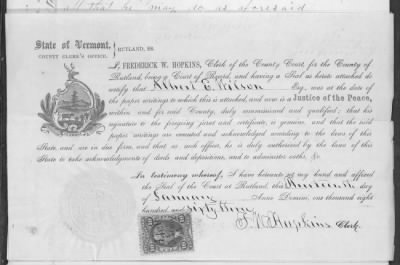 all that he may do as aforesaid
State of Vermont,
COUNTY CLERK'S OFFICE.
RUTLAND, SS.
I, FREDERICK W. HOPKINS, Clerk of the County Court for the County of
Rutland, being a Court of Record, and having a Seal as hereto attached do
certify that Albert E. Wilson Esq., was at the date of
the paper writings to which this is attached, and now is a Justice of the Peace,
within and for said County, duly commissioned and qualified; that his
signature to the foregoing jurat and certificate, is genuine, and that the said
paper writings are executed and acknowledged according to the laws of this
State, and are in due form, and that as such officer, he is duly authorized by the laws of this
State to take acknowledgments of deeds and depositions, and to administer oaths, &c.
In testimony whereof, I have hereunto set my hand and affixed
the Seal of the Court at Rutland, this day
of January Anno Domini, one thousand eight
hundred, and sixty three
F. W. Hopkins Clerk.